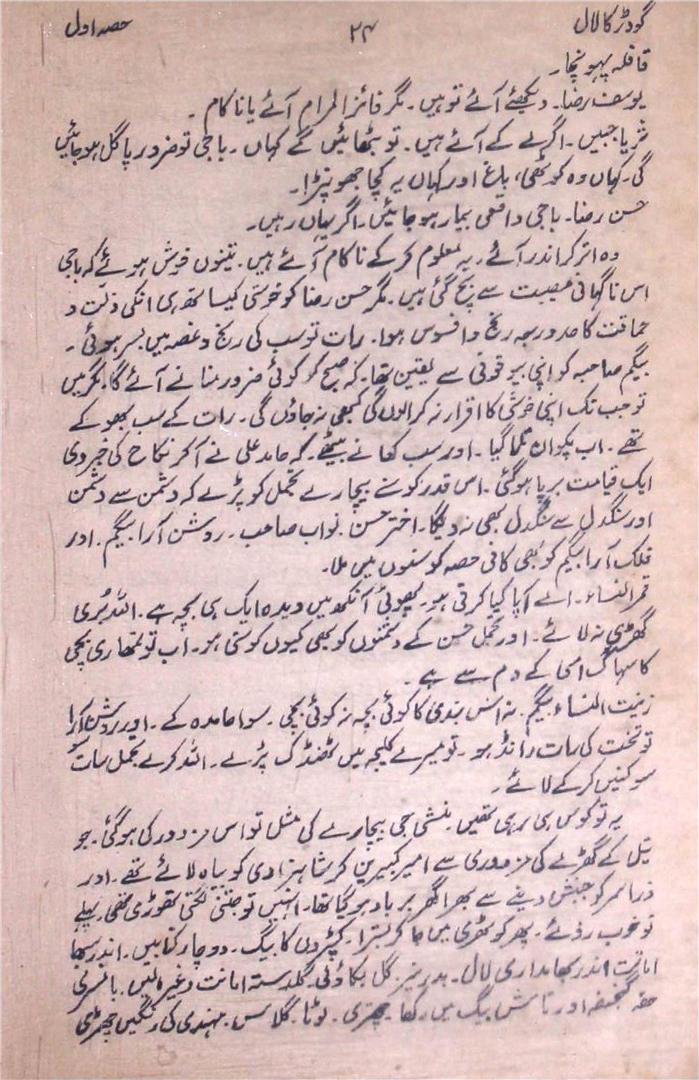 گودڑ کا لال ۲۴ حصہ اول
قافلہ پہونچا۔
یوسف رضا۔ دیکھئے آئے تو ہیں۔ مگر فائز المرام آئے یا ناکام۔
ثریا جبیں۔ اگر لے کے آئے ہیں۔ تو بٹھائیں گے کہاں۔ باجی تو ضرور پاگل ہو جائیں
گی۔ کہاں وہ کوٹھی، باغ اور کہاں یہ کچا جھونپڑا۔
حسن رضا۔ باجی واقعی بیمار ہو جائیں۔ اگر یہاں رہیں۔
وہ اتر کر اندر آئے۔ یہ معلوم کر کے ناکام آئے ہیں۔ تینوں خوش ہوئے کہ باجی
اس ناگہانی مصیبت سے بچ گئی ہیں۔ مگر حسن رضا کو خوشی کیساتھ ہی انکی ذلت و
حماقت کا صدور جہ رنج و افسوس ہوا۔ رات تو سب کی رنج و غصہ میں بسر ہوئی۔
بیگم صاحبہ کو اپنی بیوقوفی سے یقین تھا۔ کہ صبح کو کوئی ضرور منانے آئے گا۔ مگر میں
تو جب تک اپنی خوشی کا اقرار نہ کرالوں گی کبھی نہ جاؤں گی۔ رات کے سب بھوکے
تھے۔ اب پکوان تلا گیا۔ اور سب کھانے بیٹھے۔ کہ حامد علی نے آکر نکاح کی خبر دی
ایک قیامت برپا ہوگئی۔ اس قدر کوسنے بیچارے تجمل کو پڑے کہ دشمن سے دشمن
اور سنگدل سے سنگدل بھی نہ دیگا۔ اختر حسن۔ نواب صاحب۔ روشن آرا بیگم۔ اور
فلک آرا بیگم کو بھی کافی حصہ کوسنوں میں ملا۔
قمر النساء۔ اے آپا کیا کرتی ہو۔ پھوٹی آنکھ میں دیدہ ایک ہی بچہ ہے۔ اللہ بُری
گھڑی نہ لائے۔ اور تجمل حسن کے دشمنوں کو بھی کیوں کوستی ہو۔ اب تو تمھاری بچی
کا سہاگ اسی کے دم سے ہے۔
زینت النساء بیگم۔ نہ اس بندی کا کوئی بچہ نہ کوئی بچی۔ سوا حامدہ کے۔ اور روشن آرا
تو تخت کی رات رانڈ ہو۔ تو میرے کلیجہ میں ٹھنڈک پڑے۔ اللہ کرے تجمل سات
سوکنیں کر کے لائے۔
یہ تو کوس ہی رہی تھیں۔ منشی جی بیچارے کی مثل تو اس مزدور کی ہوگئی۔ جو
تیل کے گھڑے کی مزدوری سے امیر کبیر بن کر شاہزادی کو بیاہ لائے تھے۔ اور
ذرا سر کو جنبش دینے سے بھرا گھر برباد ہو گیا تھا۔ انہیں تو جتنی لگتی تھوڑی تھی۔ پہلے
تو خوب روئے۔ پھر کوٹھری میں جا کر بسترا۔ کپڑوں کا بیگ۔ دو چار کتابیں۔ اندر سبھا
امانت اندر سبھا مداری لال۔ بدر منیر۔ گل بکاؤلی۔ گلدستہ امانت وغیرہ لیں۔ بانسری
حقہ گنجیفہ اور تاش بیگ میں رکھا۔ چھتری۔ لوٹا۔ گلاس۔ مہندی کی رنگیں چھڑی